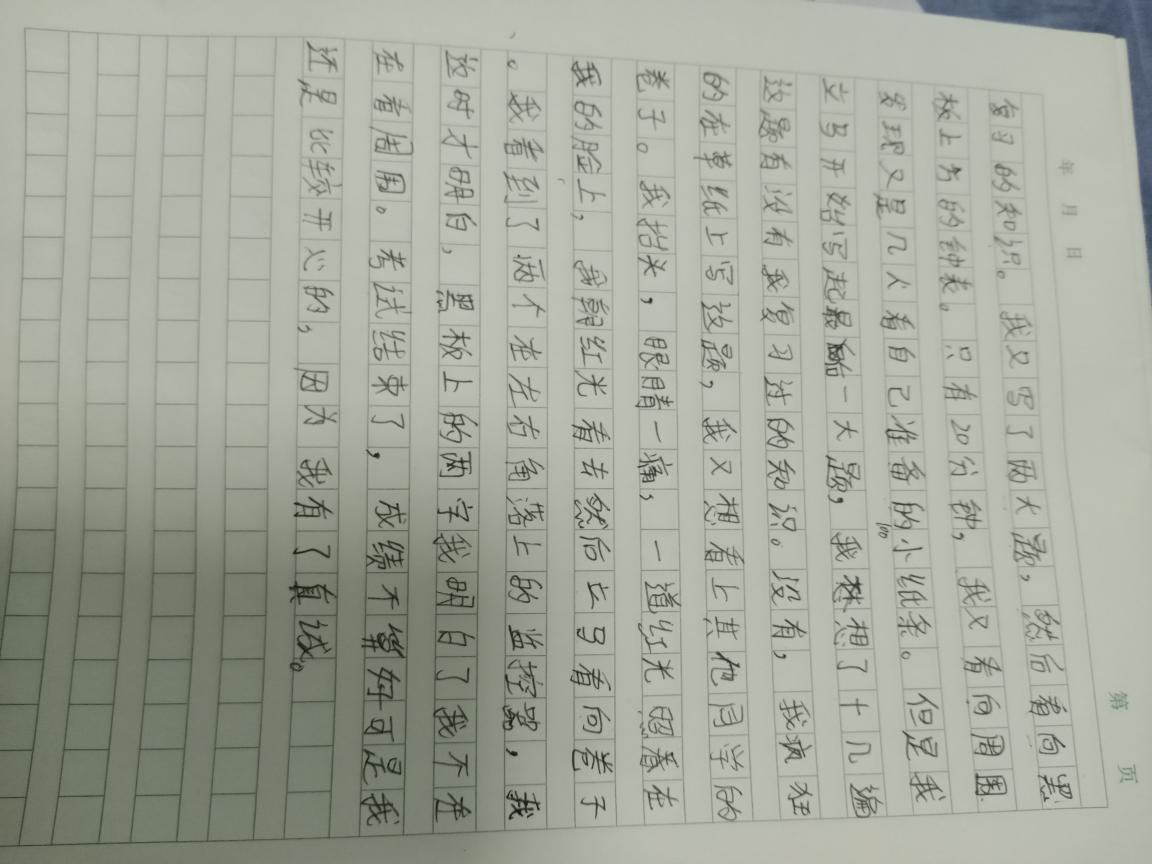 第 页
年 月 日
复习的知识。我又写了两大题,然后看向黑
板上方的钟表。只有20分钟,我又看向周围
发现又是几人看自己准备的小纸条。但是我
立马开始写起最后一大题,我想了十几遍
这题有没有我复习过的知识。没有,我疯狂
的在草纸上写这题,我又想看上其他同学的
卷子。我抬头,眼睛一痛,一道红光照着在
我的脸上,我朝红光看去然后立马看向卷子
。我看到了两个在左右角落上的监控器,我
这时才明白,黑板上的两字我明白了我不在
在看周围。考试结束了,成绩不算好可是我
还是比较开心的,因为我有了真诚。